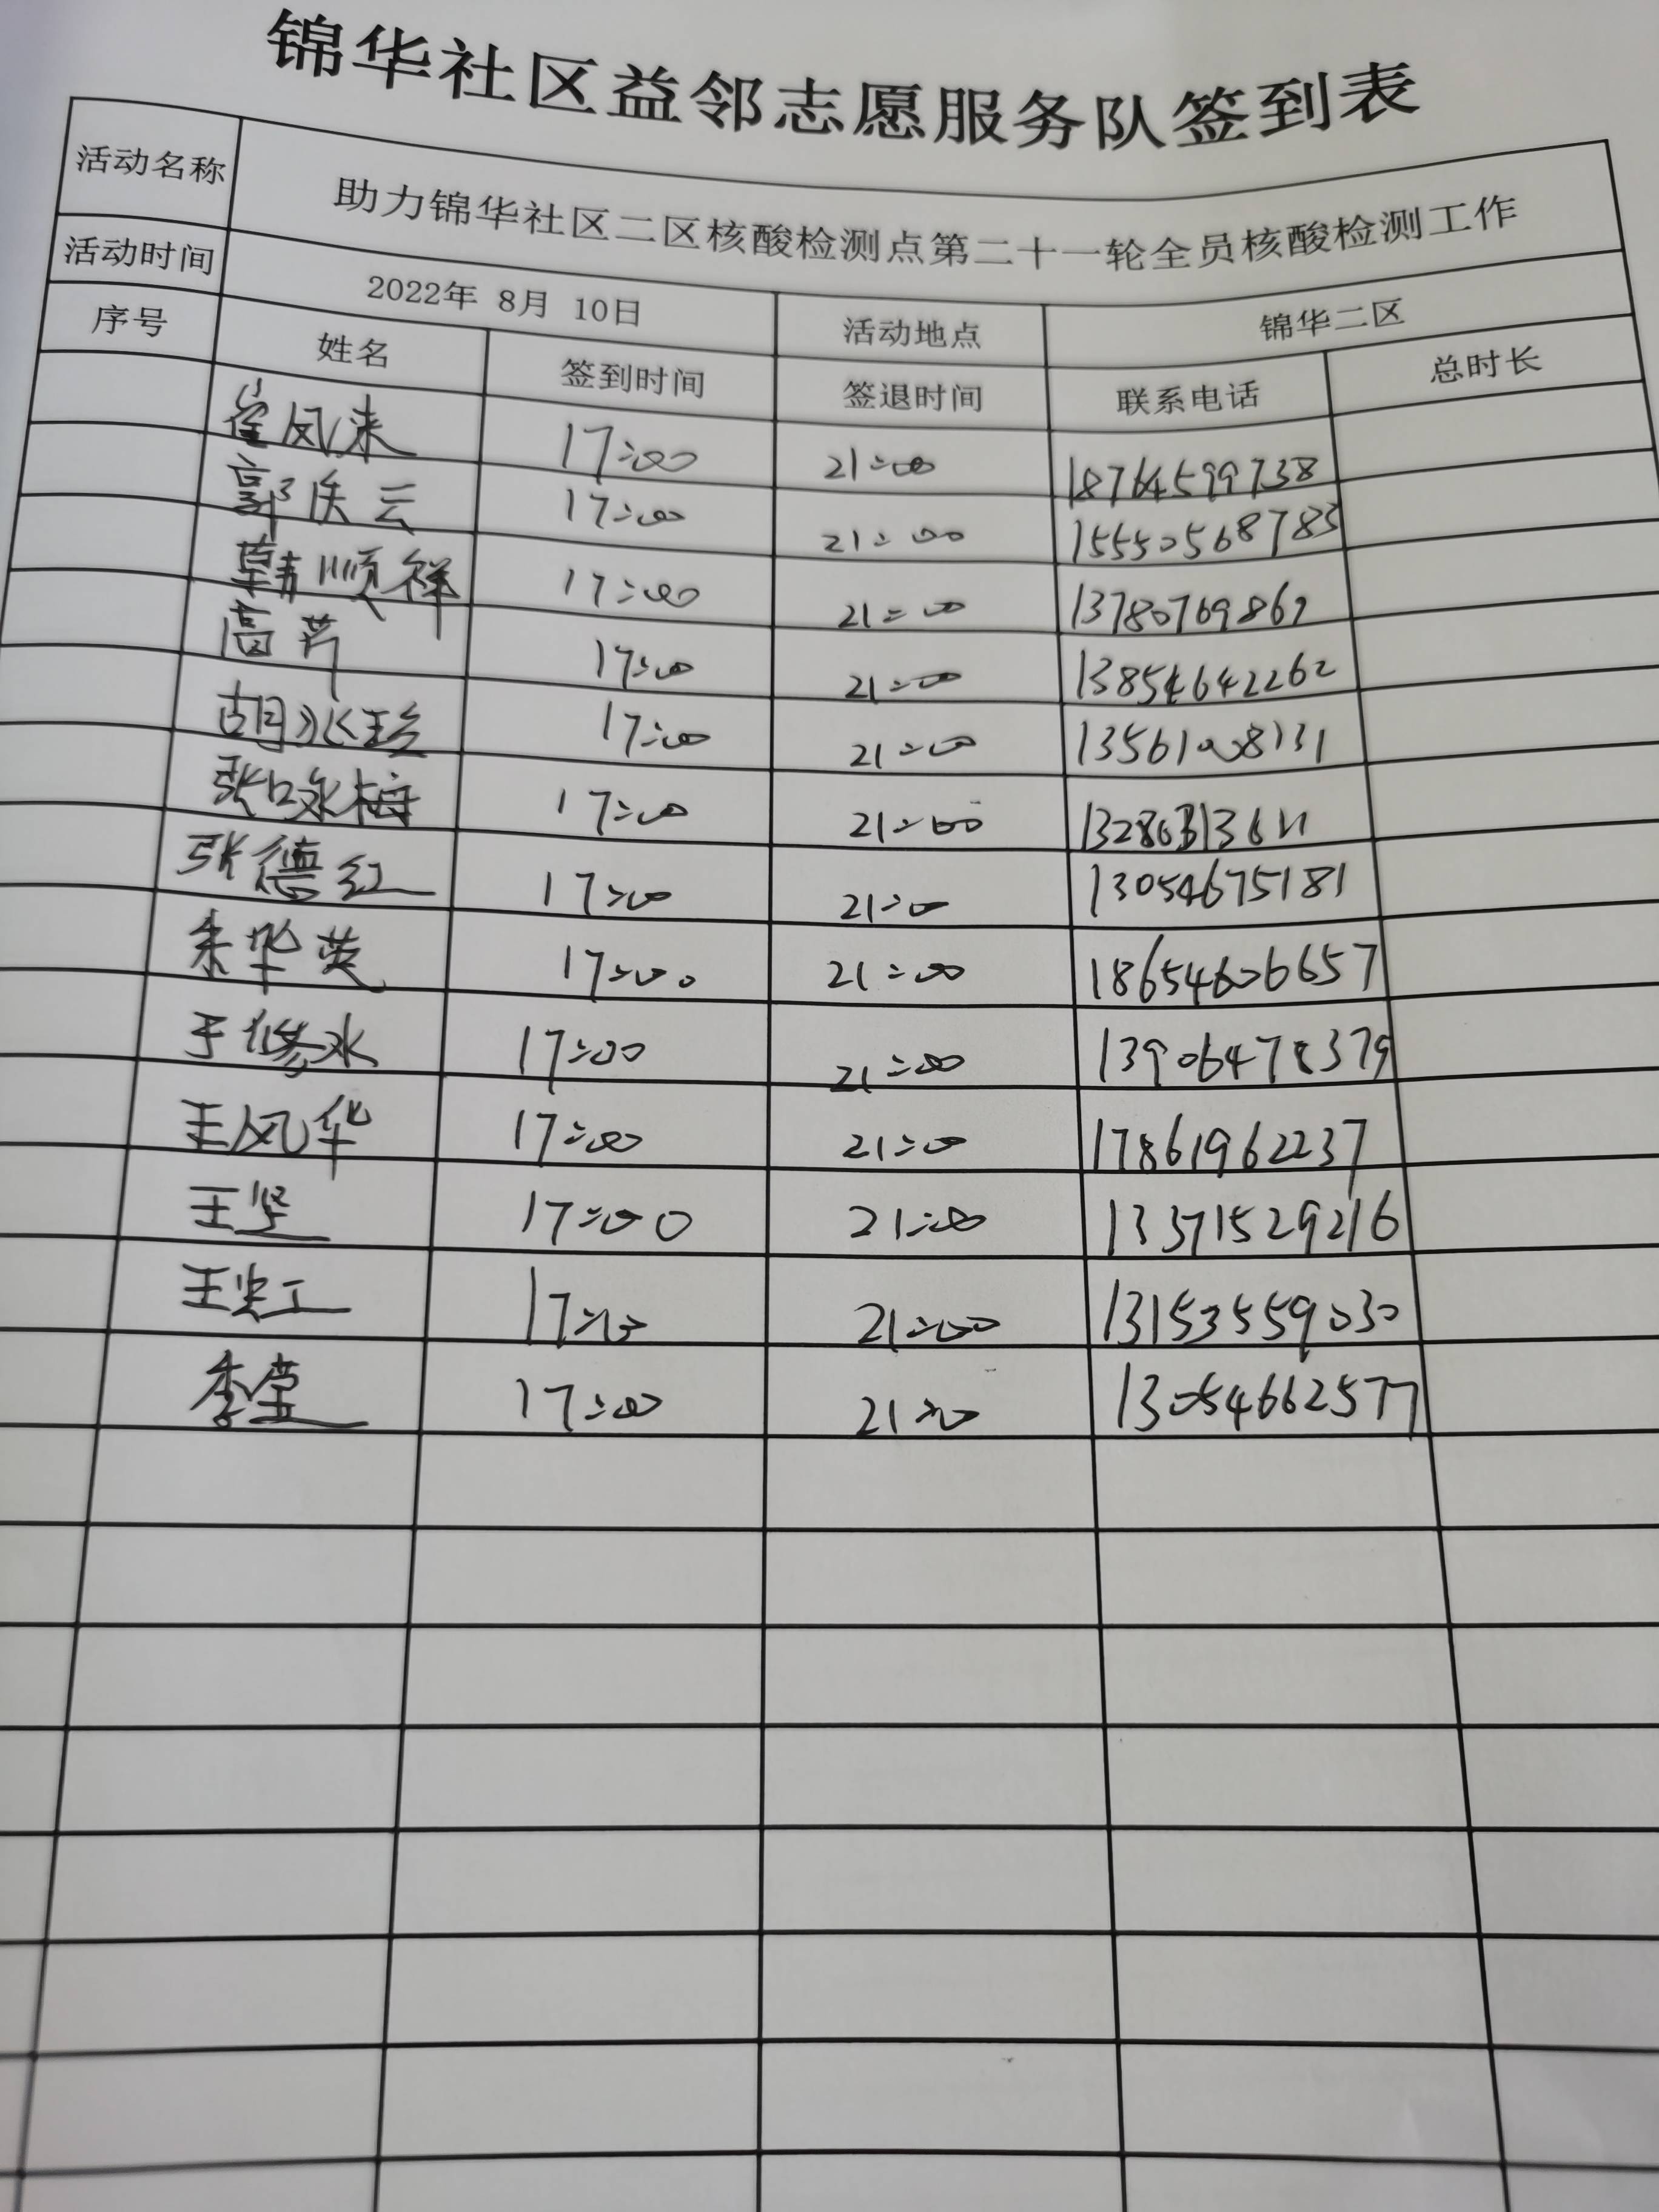 锦华社区益邻志愿服务队签到表
活动名称 助力锦华社区二区核酸检测点第二十一轮全员核酸检测工作
活动时间 2022年 8月 10日 活动地点 锦华二区
序号 姓名 签到时间 签退时间 联系电话 总时长
崔凤来 17:00 21:00 18764599738
郭庆云 17:00 21:00 15550568783
韩顺祥 17:00 21:00 13780769867
高芹 17:00 21:00 13854642262
胡冰珍 17:00 21:00 13561008131
张咏梅 17:00 21:00
张德红 17:00 21:00 13054675181
朱华英 17:00 21:00 18654606657
于修水 17:00 21:00 13906478379
王凤华 17:00 21:00 17861962237
王坚 17:00 21:00 13371529216
17:00 21:00 13153559030
李莹 17:00 21:00 13054662577